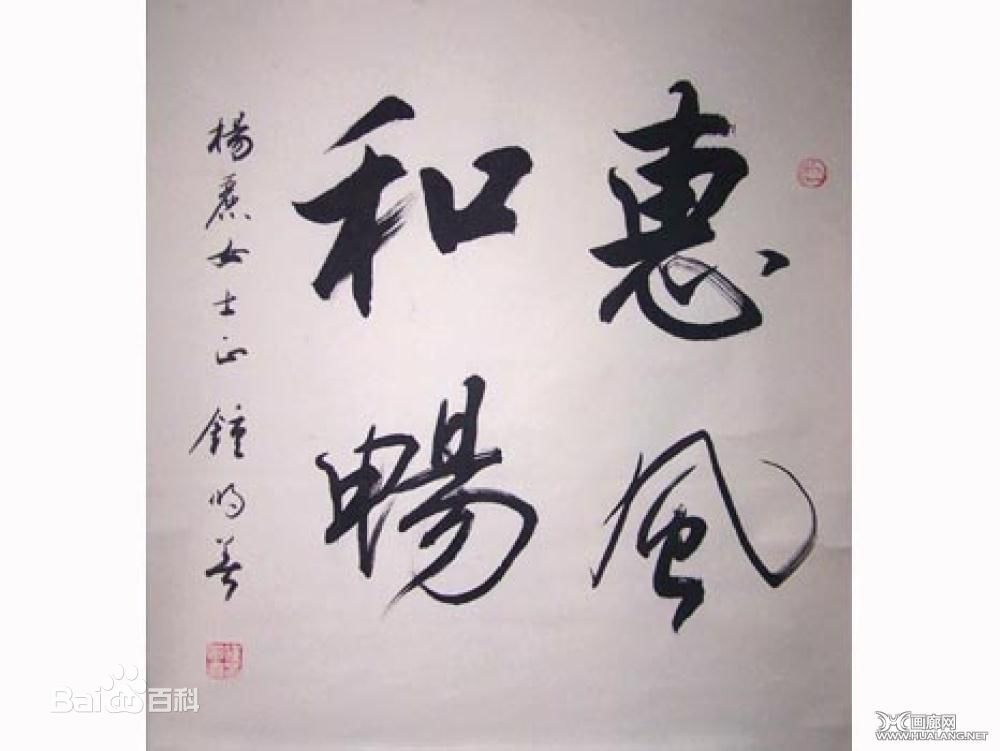 惠風
和暢
楊麗女士正 鍾明善
Bai百科
画廊网
WWW.HUALANG.NET